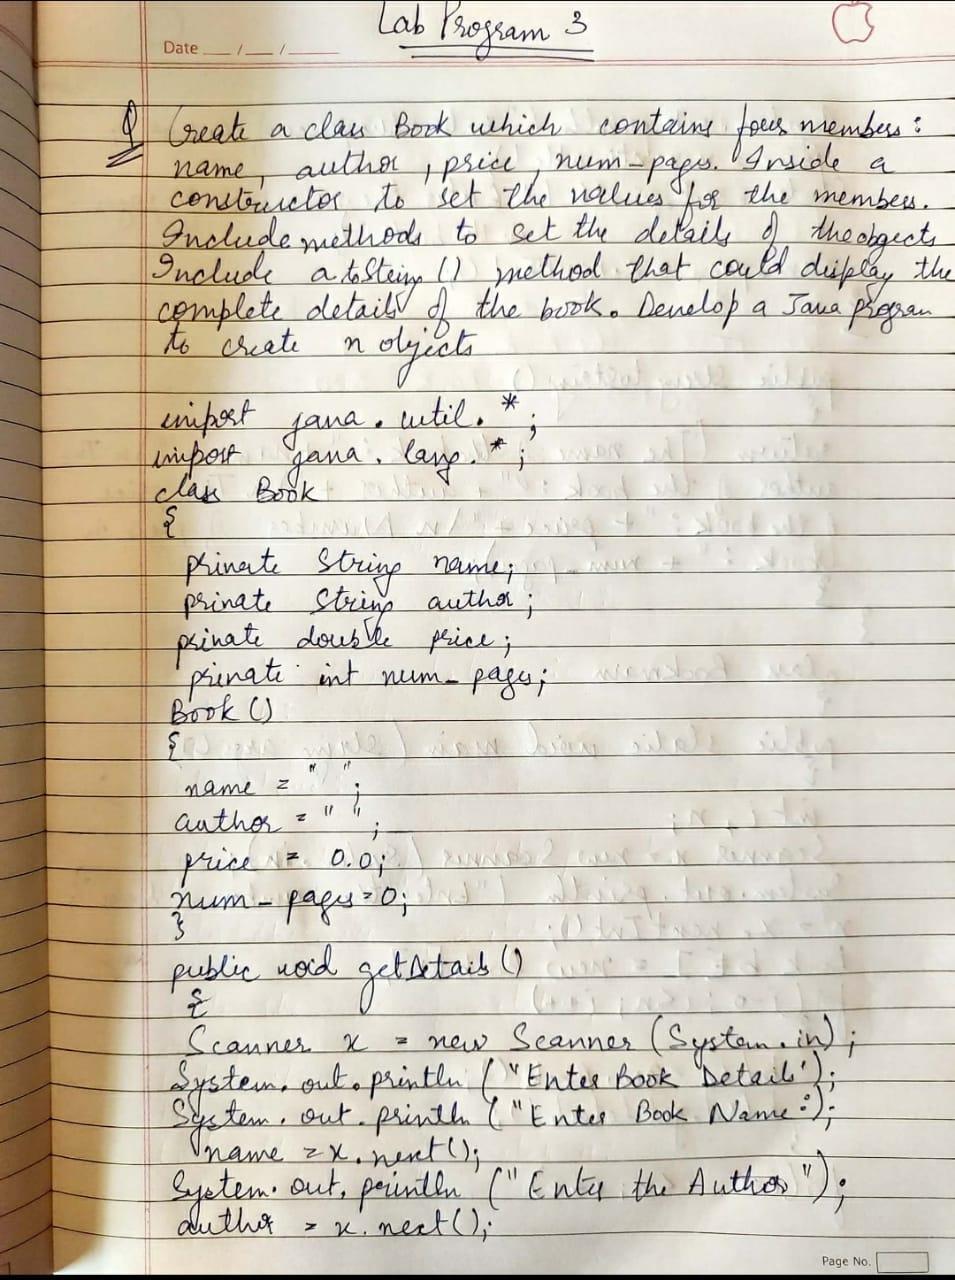 Lab Program 3
Date __/__/____
Q Create a class Book which contains four members:
name, author, price, num_pages. Inside a
constructor to set the values for the members.
Include methods to set the details of the objects
Include a toString () method that could display the
complete details of the book. Develop a Java program
to create n objects
import java.util.*;
import java.lang.*;
class Book
{
private String name;
private String author;
private double price;
private int num_pages;
Book ()
{
name = " ";
author = " ";
price = 0.0;
num_pages = 0;
}
public void getDetails ()
{
Scanner x = new Scanner (System.in);
System.out.println ("Enter Book Details");
System.out.println ("Enter Book Name:);
name = x.next();
System.out.println ("Enter the Author");
author = x.next();
Page No.